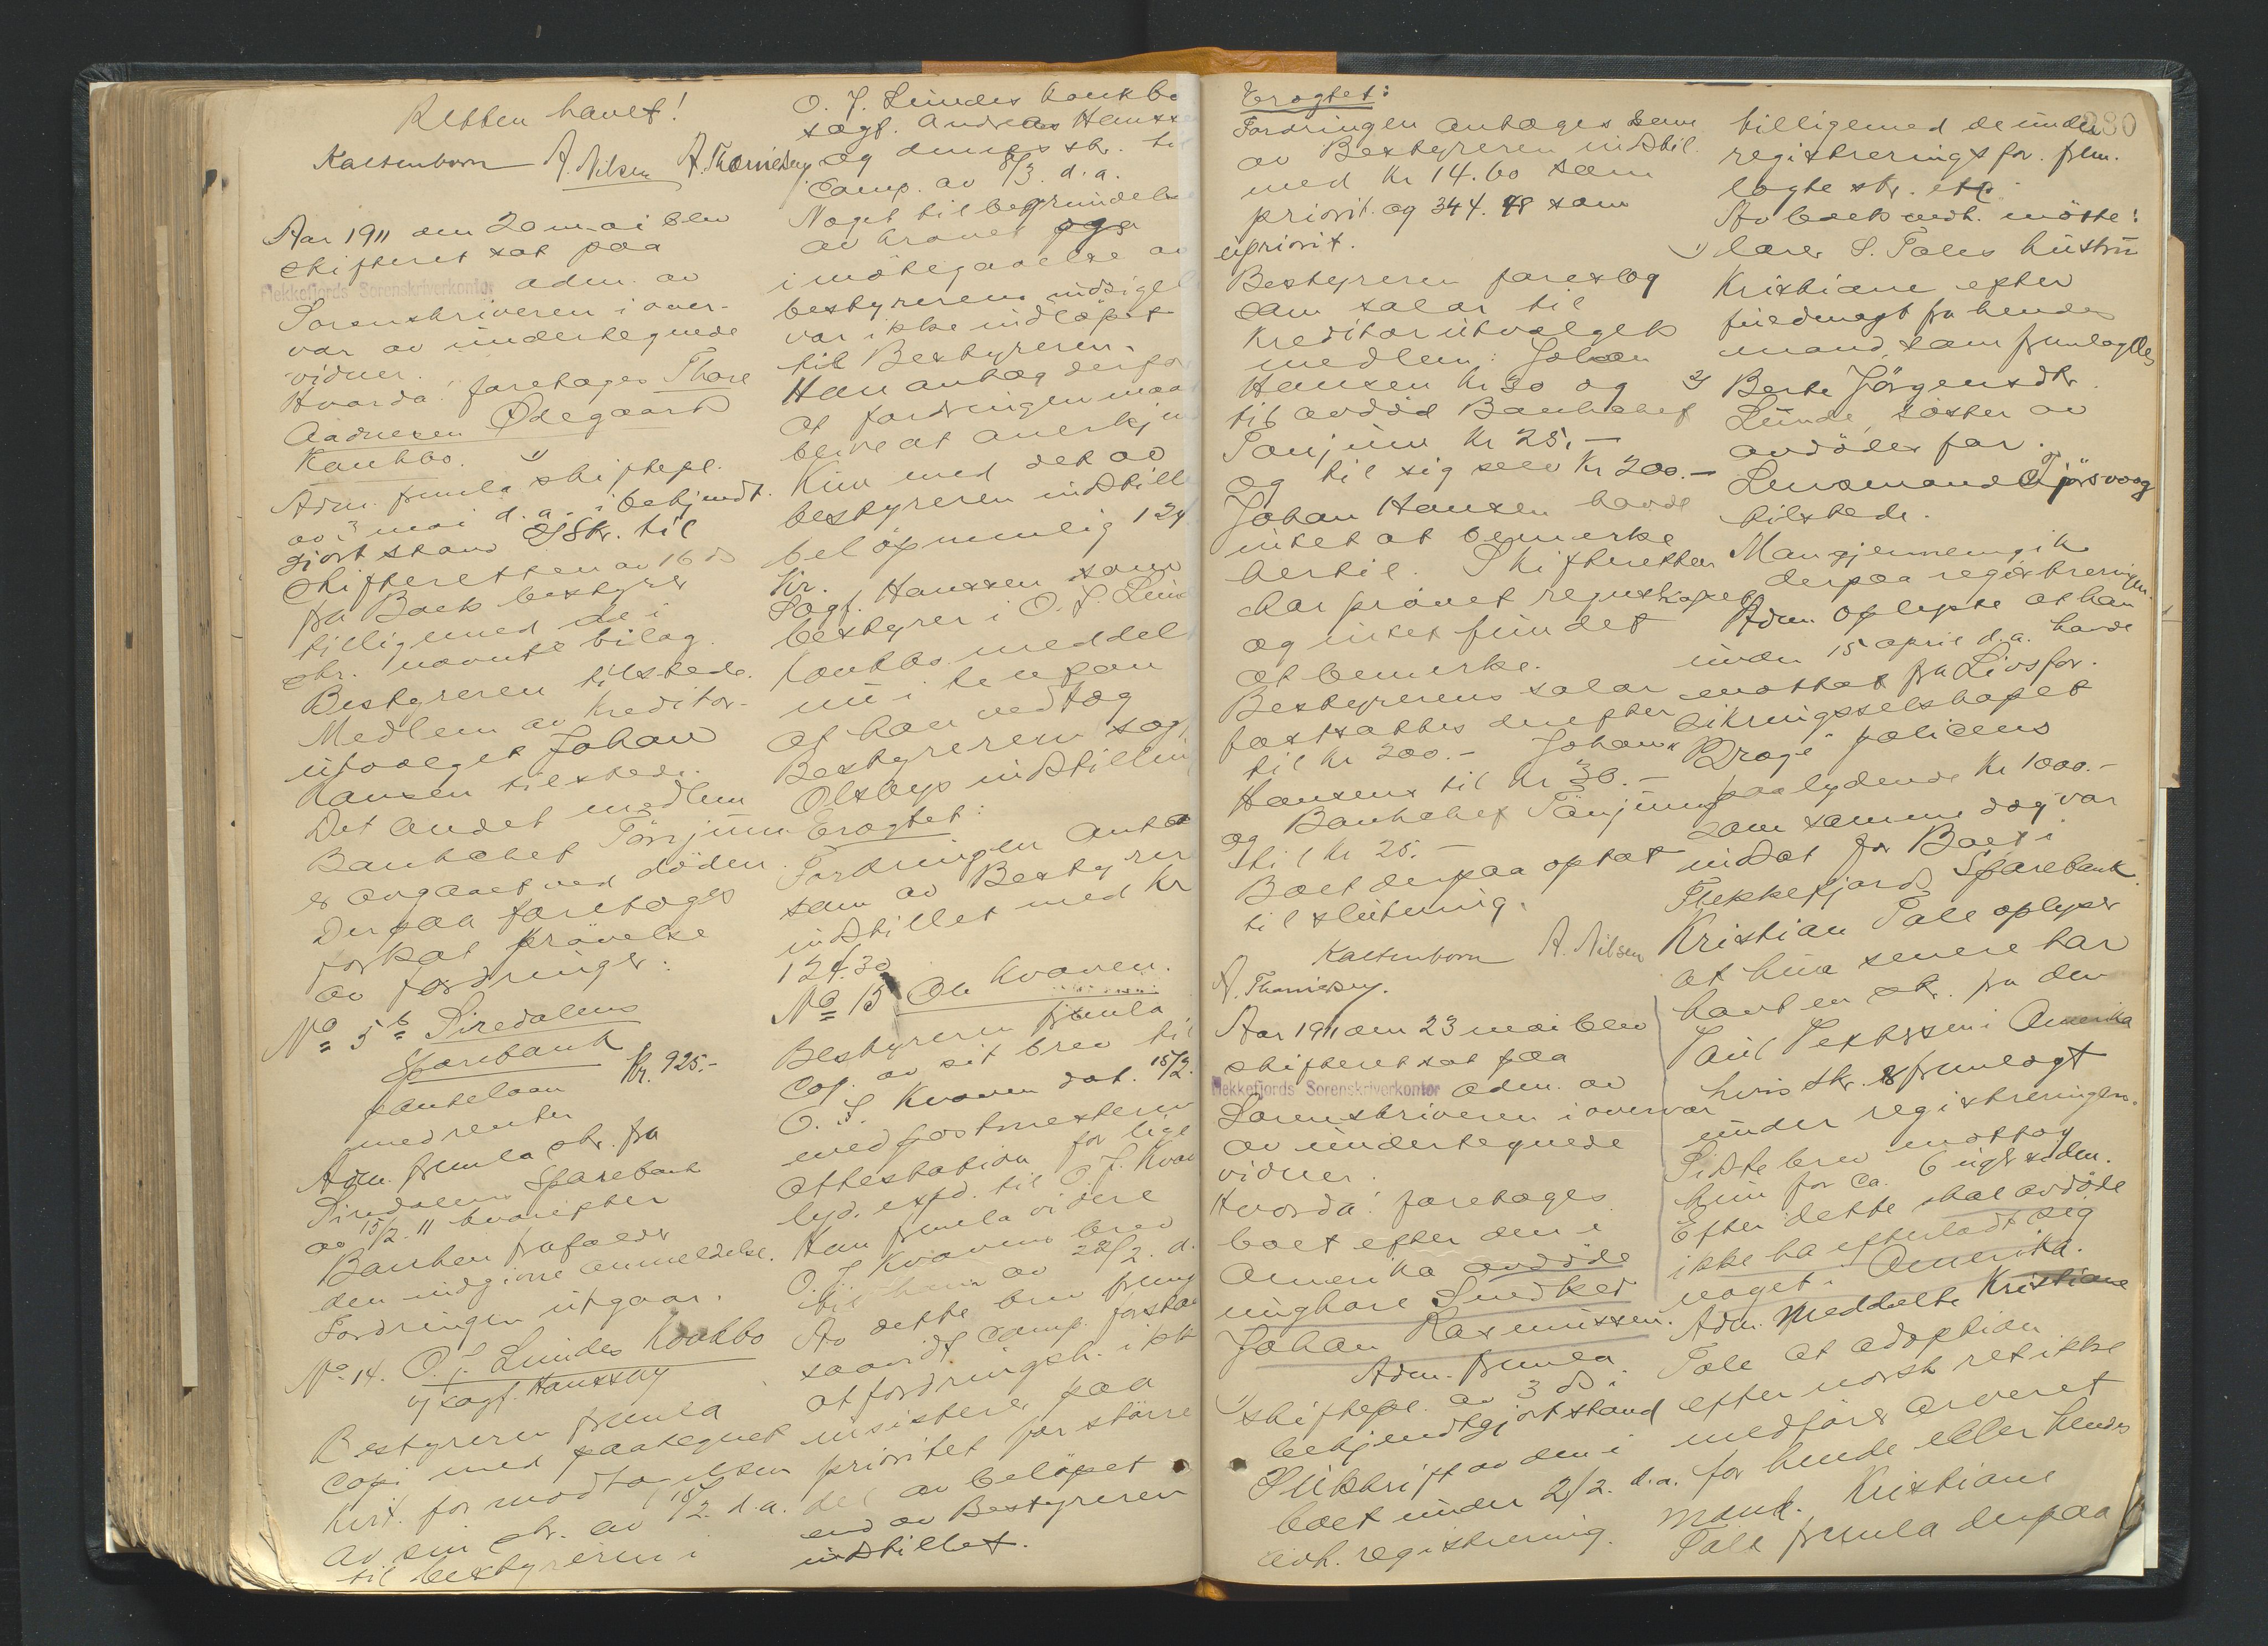 Retten hævet!
Kaltenborn A. Nilsen A. Thomesen
Aar 1911 den 20 mai blev
skifteret sat paa
Flekkefjords Sorenskriverkontor adm. av
Sorenskriveren i over-
vær av undertegnede
vidner.
Hvorda foretages Thore
Aadnesen Ødegaard
Konkbo.
Adm. fremla 1) skiftepl.
av 3 mai d.a. i bekjendt-
gjort stand 2) Skr. til
skifteretten av 16 ds
fra Boets bestyrer
tilligemed de i
skr. nævnte bilag.
Bestyreren tilstede.
Medlem av Kreditor-
utvalget Johan
Hansen tilstede.
Det andet medlem
Bankchef Tönjum
er avgaaet ved döden.
Derpaa foretoges
forsat prövelse
av fordringer:
No 5 b Siredalens
Sparebank
pantelaan Kr. 925.-
med renter
Adm. fremla skr. fra
Siredalens Sparebank
av 15/2 11 hvorefter
Banken frafalder
den indgivne anmeldelse.
Fordringen utgaar.
No 14. O. J. Lundes Konkbo
v/ sagf. Hanssen
Bestyreren fremla
copi med paategnet
kvit. for modtagelsen
av sin skr. av 15/2 d.a.
til bestyreren i
O. J. Lundes Konkbo
sagf. Andreas Hanssen
og dennes skr. til
Comp. av 8/3 d.a.
Noget til begrundelse
av kravet
i mötegaaelse av
bestyrerens indsigel
var ikke indlöpet
til Bestyreren.
Han antog derfor
at fordringen maa
blive at anerkjende
Kun med det av
bestyreren indstille
belöp nemlig 124
Kr.
Sagf. Hanssen som
bestyrer i O. J. Lunde
konkbo meddel
nu i telefon
at han vedtog
Bestyreren sagf.
Olsbys indstilling
Eragtet:
Fordringen antages
som av Bestyrer
indstillet med Kr
124.30
No 15 Ole Kvaven.
Bestyreren fremla
Copi av sit brev til
O. J. Kvaven dat. 15/2.
med postmesterens
attestation for lige
lyd. expd. til O. J. Kvav
Han fremla videre
O. J. Kvavens brev
til ham av 28/2. d.
Av dette brev fremg
saavidt Comp. forstaar
at fordringsh. ikke
insisterer paa
prioritet for större
del av belöpet
end av Bestyreren
indstillet.
Eragtet:
Fordringen antages som
av Bestyreren indstil.
med Kr 14.60 som
priorit. og 344.48 som
upriorit.
Bestyreren foreslog
som salar til
Kreditorutvalgets
medlem: Johan
Hansen Kr 30 og
til avdöd Bankchef
Tönjum Kr 25.-
og til sig selv Kr 200.-
Johan Hansen havde
intet at bemerke
hertil. Skifteretten
har prövet regnskapet
og intet fundet
at bemerke.
Bestyrerens salar
fastsattes derefter
til Kr 200.- Johan
Hansens til Kr 30.-
og Bankchef Tönjums
til Kr 25.-
Boet derpaa optat
til slutning.
Kaltenborn A. Nilsen
A. Thomesen.
Aar 1911 den 23 mai blev
skifteret sat paa
Flekkefjords Sorenskriverkontor adm. av
Sorenskriveren i overvær
av undertegnede
vidner.
Hvorda: foretages
boet efter den i
Amerika avdöde
ungkarl Snedker
Johan Rasmussen.
Adm. fremla
1) skiftepl. av 3 ds i
bekjendtgjort stand
2) Utskrift av den i
boet under 2/2. d.a.
avh. registrering.
280
tilligemed de under
registreringsfor. frem.
lagte skr. etc.
Av boets vedk. mötte:
1) lærer S. Tales hustru
Kristiane efter
fuldmagt fra hendes
mand, som fremlagdes
2) Berte Jörgensdtr.
Lunde, söster av
avdödes far.
Lensmand Tjörsvaag
tilstede.
Man gjennemgik
derpaa registreringen.
Adm. oplyste at han
under 15 april d.a. havde
mottat fra Livsfor-
sikringsselskapet
"Brage" policens
paalydende Kr 1000.-
som samme dag var
indsat for Boet i
Flekkefjords Sparebank.
Kristian Tale oplyser
at hun senere har
havt en skr. fra den
Paul Texassen i Amerika
hvis skr. er fremlagt
under registreringen.
Sidste brev mottog
hun for ca. 6 uger siden.
Efter dette skal avdöde
ikke ha efterladt sig
noget i Amerika.
Adm. meddelte Kristiane
Tale at adoption
efter norsk ret ikke
medförer arveret
for hende eller hendes
mand. Kristiane
Tale fremla derpaa